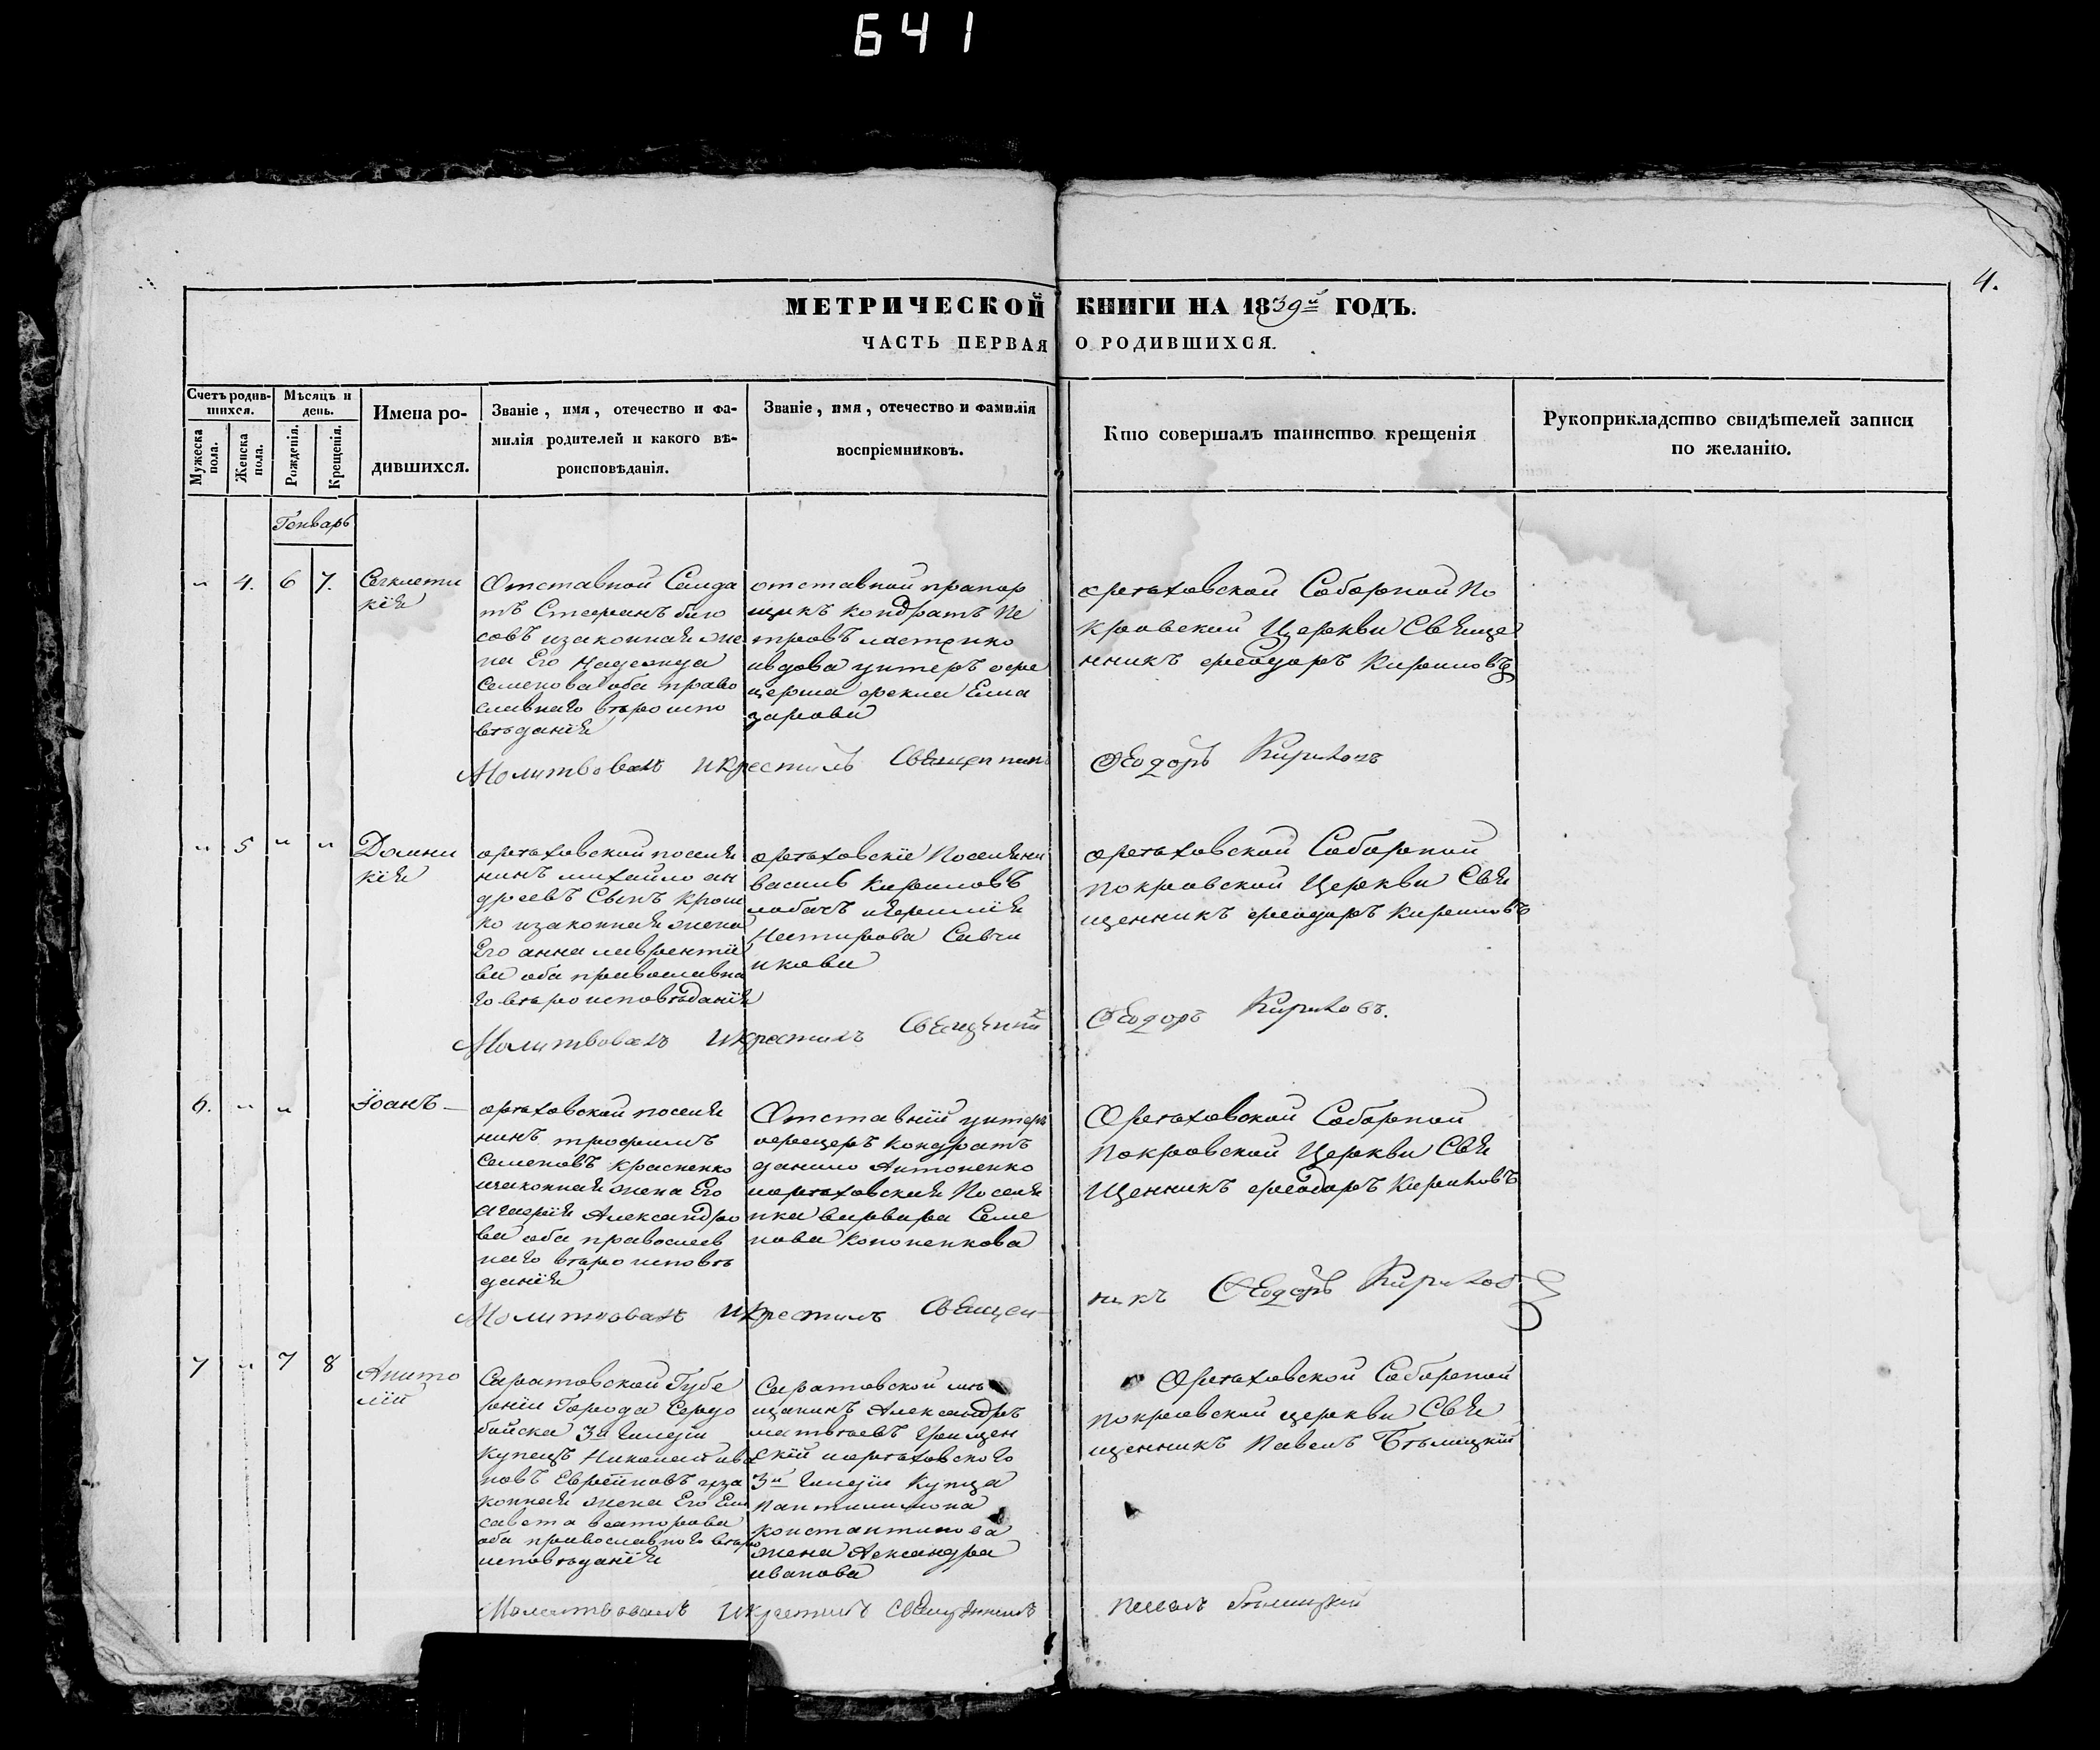 641
4.
МЕТРИЧЕСКОЙ КНИГИ НА 1839й ГОДЪ.
ЧАСТЬ ПЕРВАЯ О РОДИВШИХСЯ.
Счетъ родившихся.
Мужеска пола.
Женска пола.
Мѣсяцъ и день.
Рожденія.
Крещенія.
Имена родившихся.
Званіе, имя, отечество и фа-
милія родителей и какого вѣ-
роисповѣданія.
Званіе, имя, отечество и фамилія
воспріемниковъ.
Кто совершалъ таинство крещенія
Рукоприкладство свидѣтелей записи
по желанію.
Генварь
" 4. 6 7.
Сегклети
кія
Отставной Солда
тъ Стефанъ
совъ изаконная же
на Его Надежда
Семенова оба право
славнаго вѣроиспо
вѣданія
отставной прапор
щикъ Кондратъ Пе
тровъ
ивдова унтеръ офи
церша фекла Ела
зарова
орѣховской Соборной По
кровской Церкви Священ
нникъ феодоръ Кириловъ
Молитвовалъ и крестилъ Священникъ Феодоръ Кириловъ
" 5 " "
Домни
кія
орѣховской поселя
нинъ михайло ан
дреевъ Сынъ Крош
ко изаконная жена
Его анна лаврентіе
ва оба православна
го вѣроисповѣданія
орѣховскіе Поселяни
василь Кириловъ
лобачъ
Нестирова Савчи
нкова
орѣховской Соборной
покровской Церкви Свя
щенникъ феодоръ Кириловъ
Молитвовалъ и крестилъ Священникъ Феодоръ Кириловъ.
6. " "
Іоанъ
орѣховской поселя
нинъ трофимъ
Семеновъ Красненко
изаконная жена Его
Александро
ва оба православ
наго вѣроисповѣ
данія
Отставній унтеръ
офицеръ Кондратъ
данило Антоненко
иорѣховская Поселя
нка варвара Семе
нова Кононенкова
Орѣховской Соборной
Покровской Церкви Свя
щенникъ феодоръ Кириловъ
Молитвовалъ и крестилъ Священ
никъ Феодоръ Кириловъ
7 " 7 8
Анато
лій
Саратовской Губе
рніи Города Сердо
бойска 3й Гилдіи
Купецъ Николай ива
новъ Евреиновъ иза
конная жена Его Ели
савета
оба православного вѣро
исповѣданія
Саратовской мѣ
щанинъ Александръ
матвѣевъ
скій иорѣховского
3й Гилдіи Купца
Пантилимона
константинова
жена Аександра
иванова
Орѣховской Соборной
покровской церкви Свя
щенникъ Павелъ Бѣлицкій
Молитвовалъ и крестилъ Священникъ Павелъ Бѣлицкій